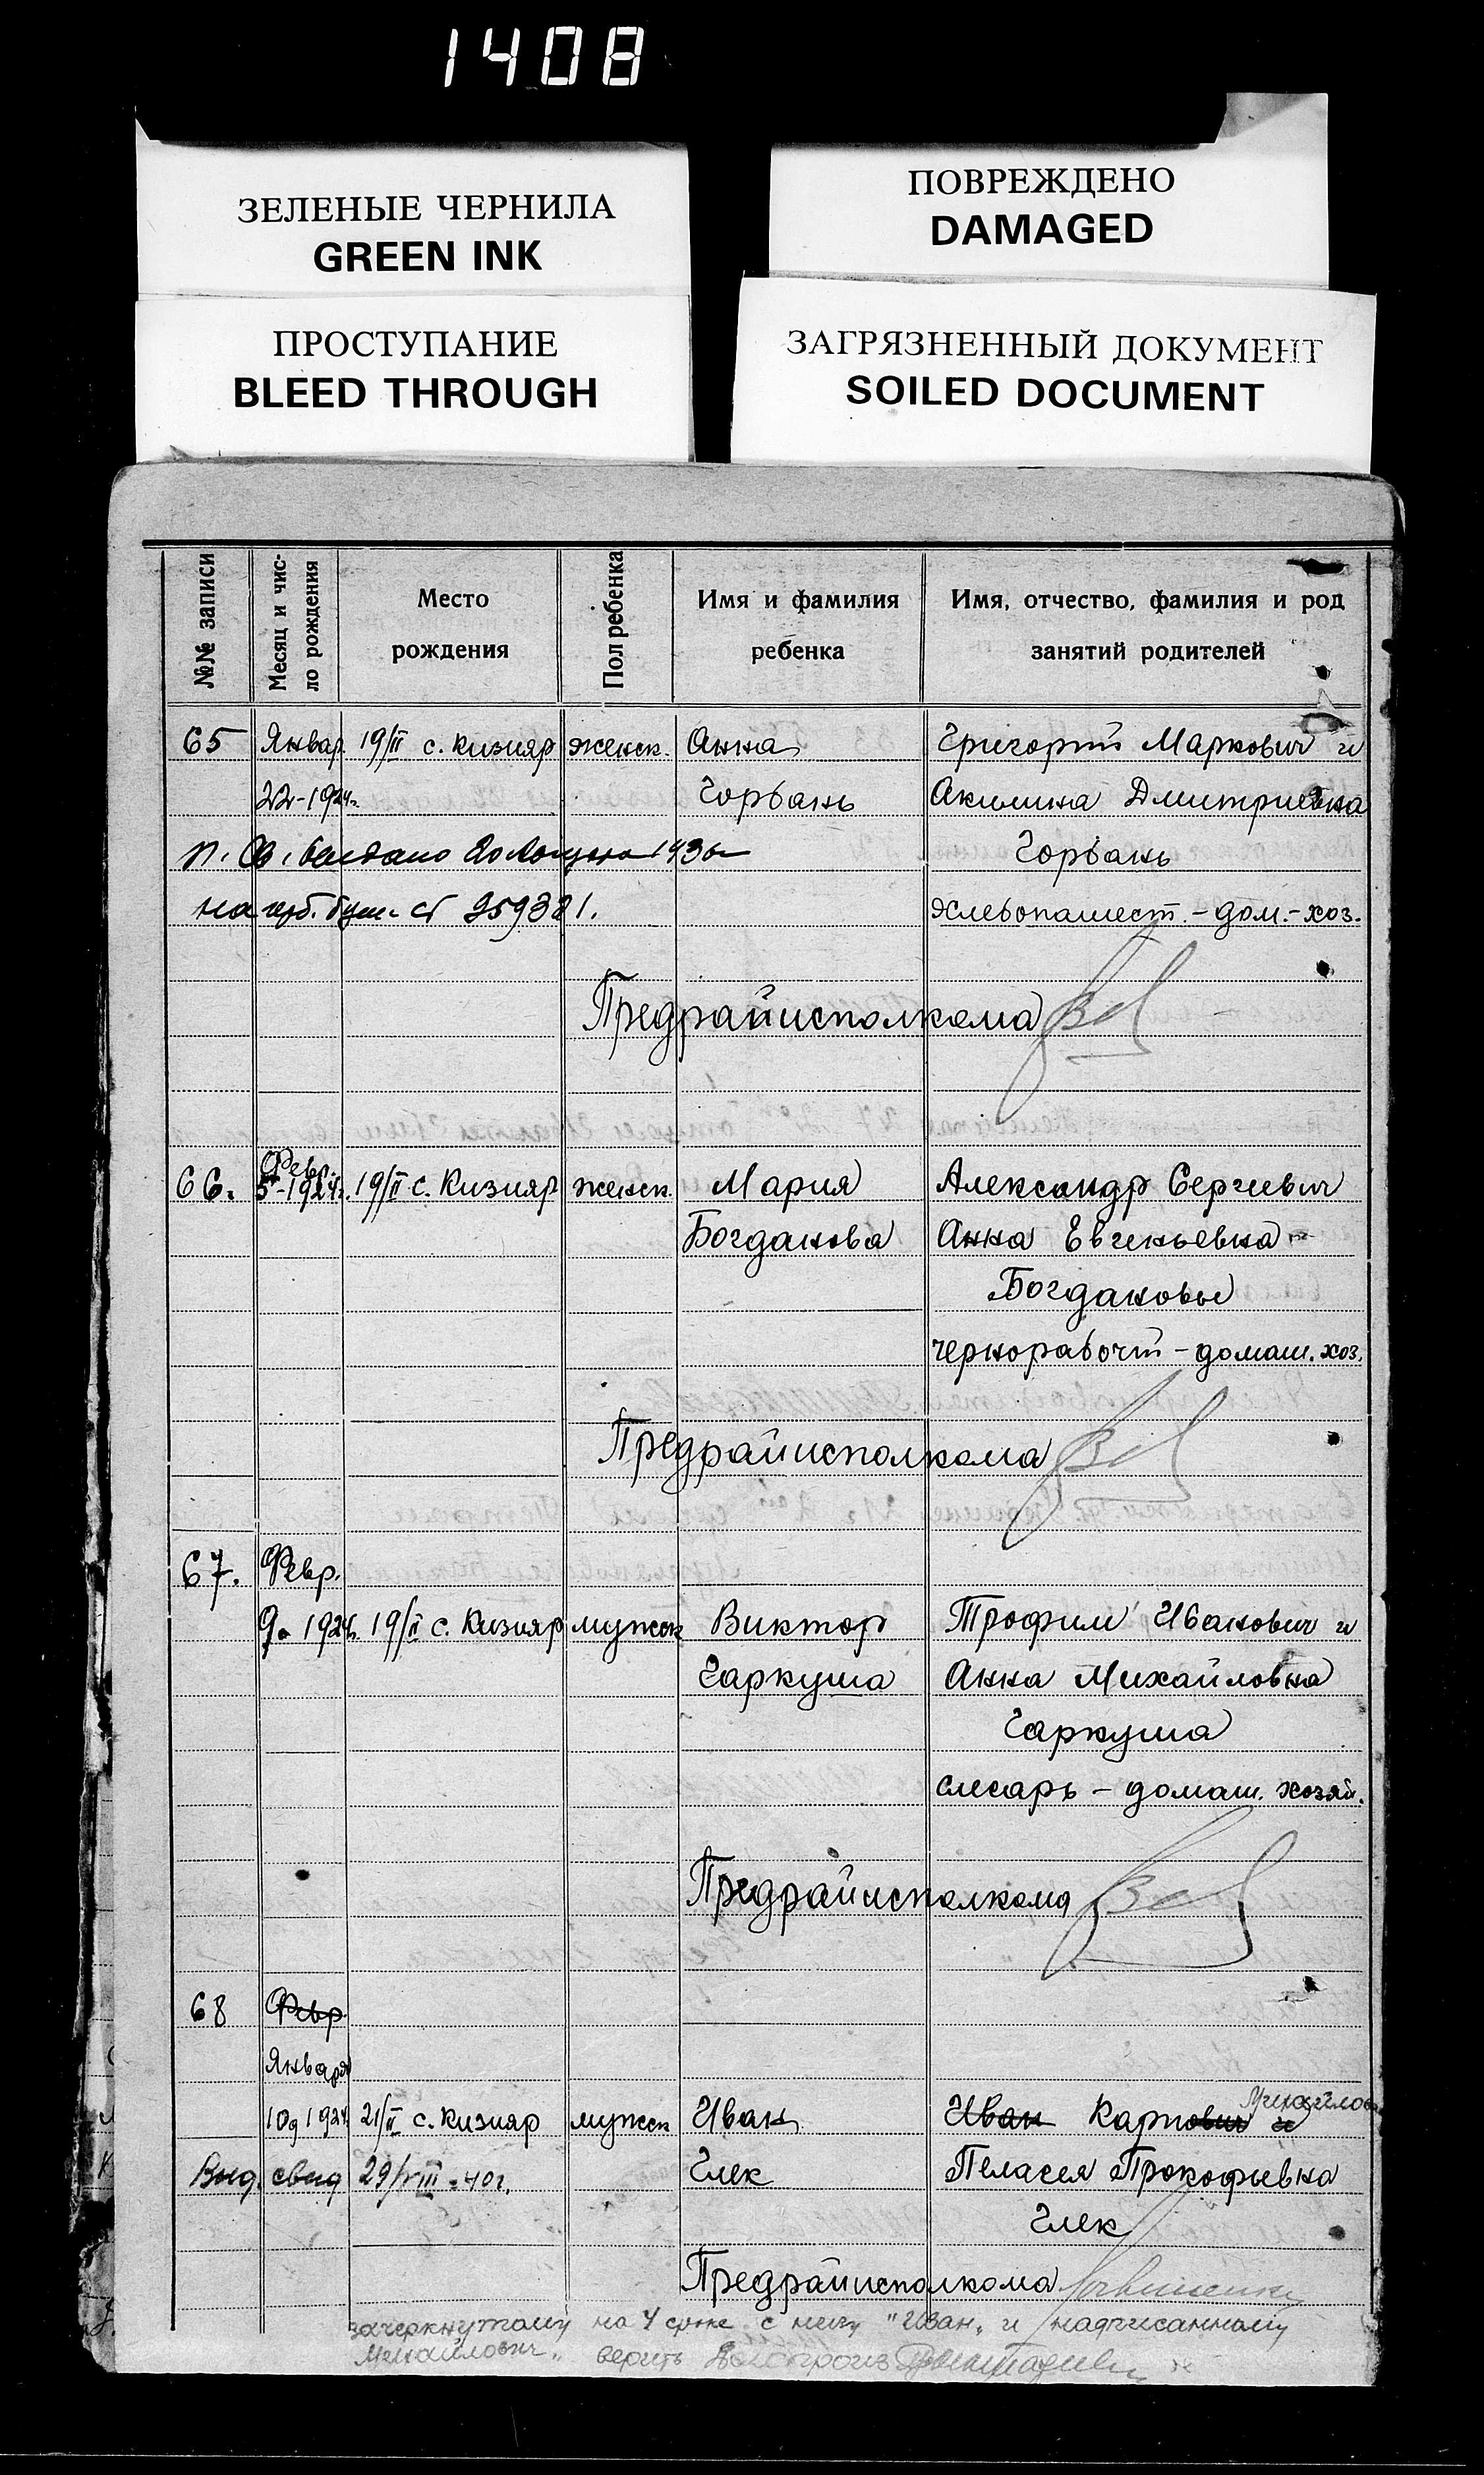 1408
ЗЕЛЕНЫЕ ЧЕРНИЛА
GREEN INK
ПОВРЕЖДЕНО
DAMAGED
ПРОСТУПАНИЕ
BLEED THROUGH
ЗАГРЯЗНЕННЫЙ ДОКУМЕНТ
SOILED DOCUMENT
№№ записи
Месяц и чис-
ло рождения
Место
рождения
Пол ребенка
Имя и фамилия
ребенка
Имя, отчество, фамилия и род
занятий родителей
65 Январ. 19/II с. Кизияр женск. Анна Григорий Маркович и
22-1924г. Горбань Акилина Дмитриевна
п. Св. выдано 1936
Горбань
на герб. бум. 259381.
Хлебопашест. - дом. - хоз.
Предрайисполкома
Февр.
66. 5-1924г. 19/II с. Кизияр женск. Мария Александр Сергиевич
Богданова Анна Евгеньевна
Богдановы
чернорабочий - домаш. хоз.
Предрайисполкома
67. Февр.
9-1924г. 19/II с. Кизияр мужск Виктор Трофим Иванович и
Гаркуша Анна Михайловна
Гаркуша
слесарь - домаш. хозяй.
Предрайисполкома
68 Февр
Января
Михайлов
10 1924 21/II с. Кизияр мужск Иван Иван Карпович и
Выд. свид 29/VIII-40г. Глек Пелагея Прокофьевна
Глек
Предрайисполкома
зачеркнутому на 4 сроке с низу "Иван" и надписанному
Михайлович" верить Делопроиз